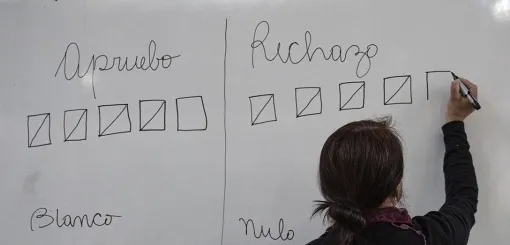 Apruebo
Rechazo
Blanco
Nulo